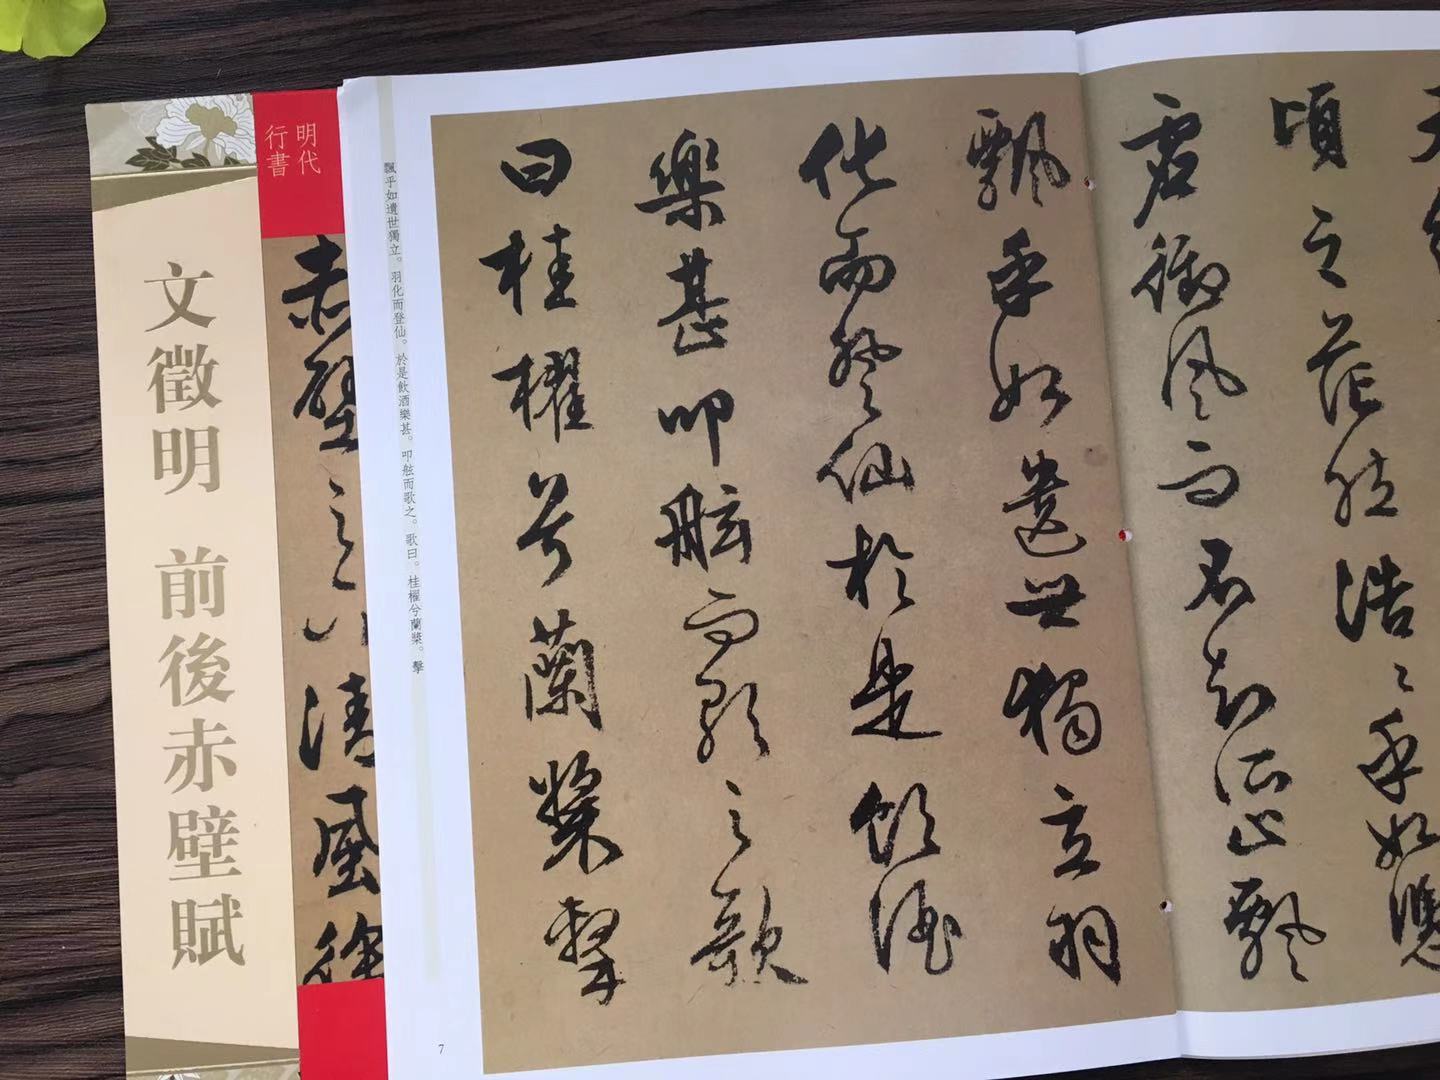 頃之茫然浩〻乎如憑
虛御風而不知所止飄
飄乎如遺世獨立羽
化而登仙於是飲酒
樂甚叩舷而歌之歌
曰桂櫂兮蘭槳擊
飄乎如遺世獨立。羽化而登仙。於是飲酒樂甚。叩舷而歌之。歌曰。桂櫂兮蘭槳。擊
7
明代
行書
赤壁之
清風徐
文徵明 前後赤壁賦